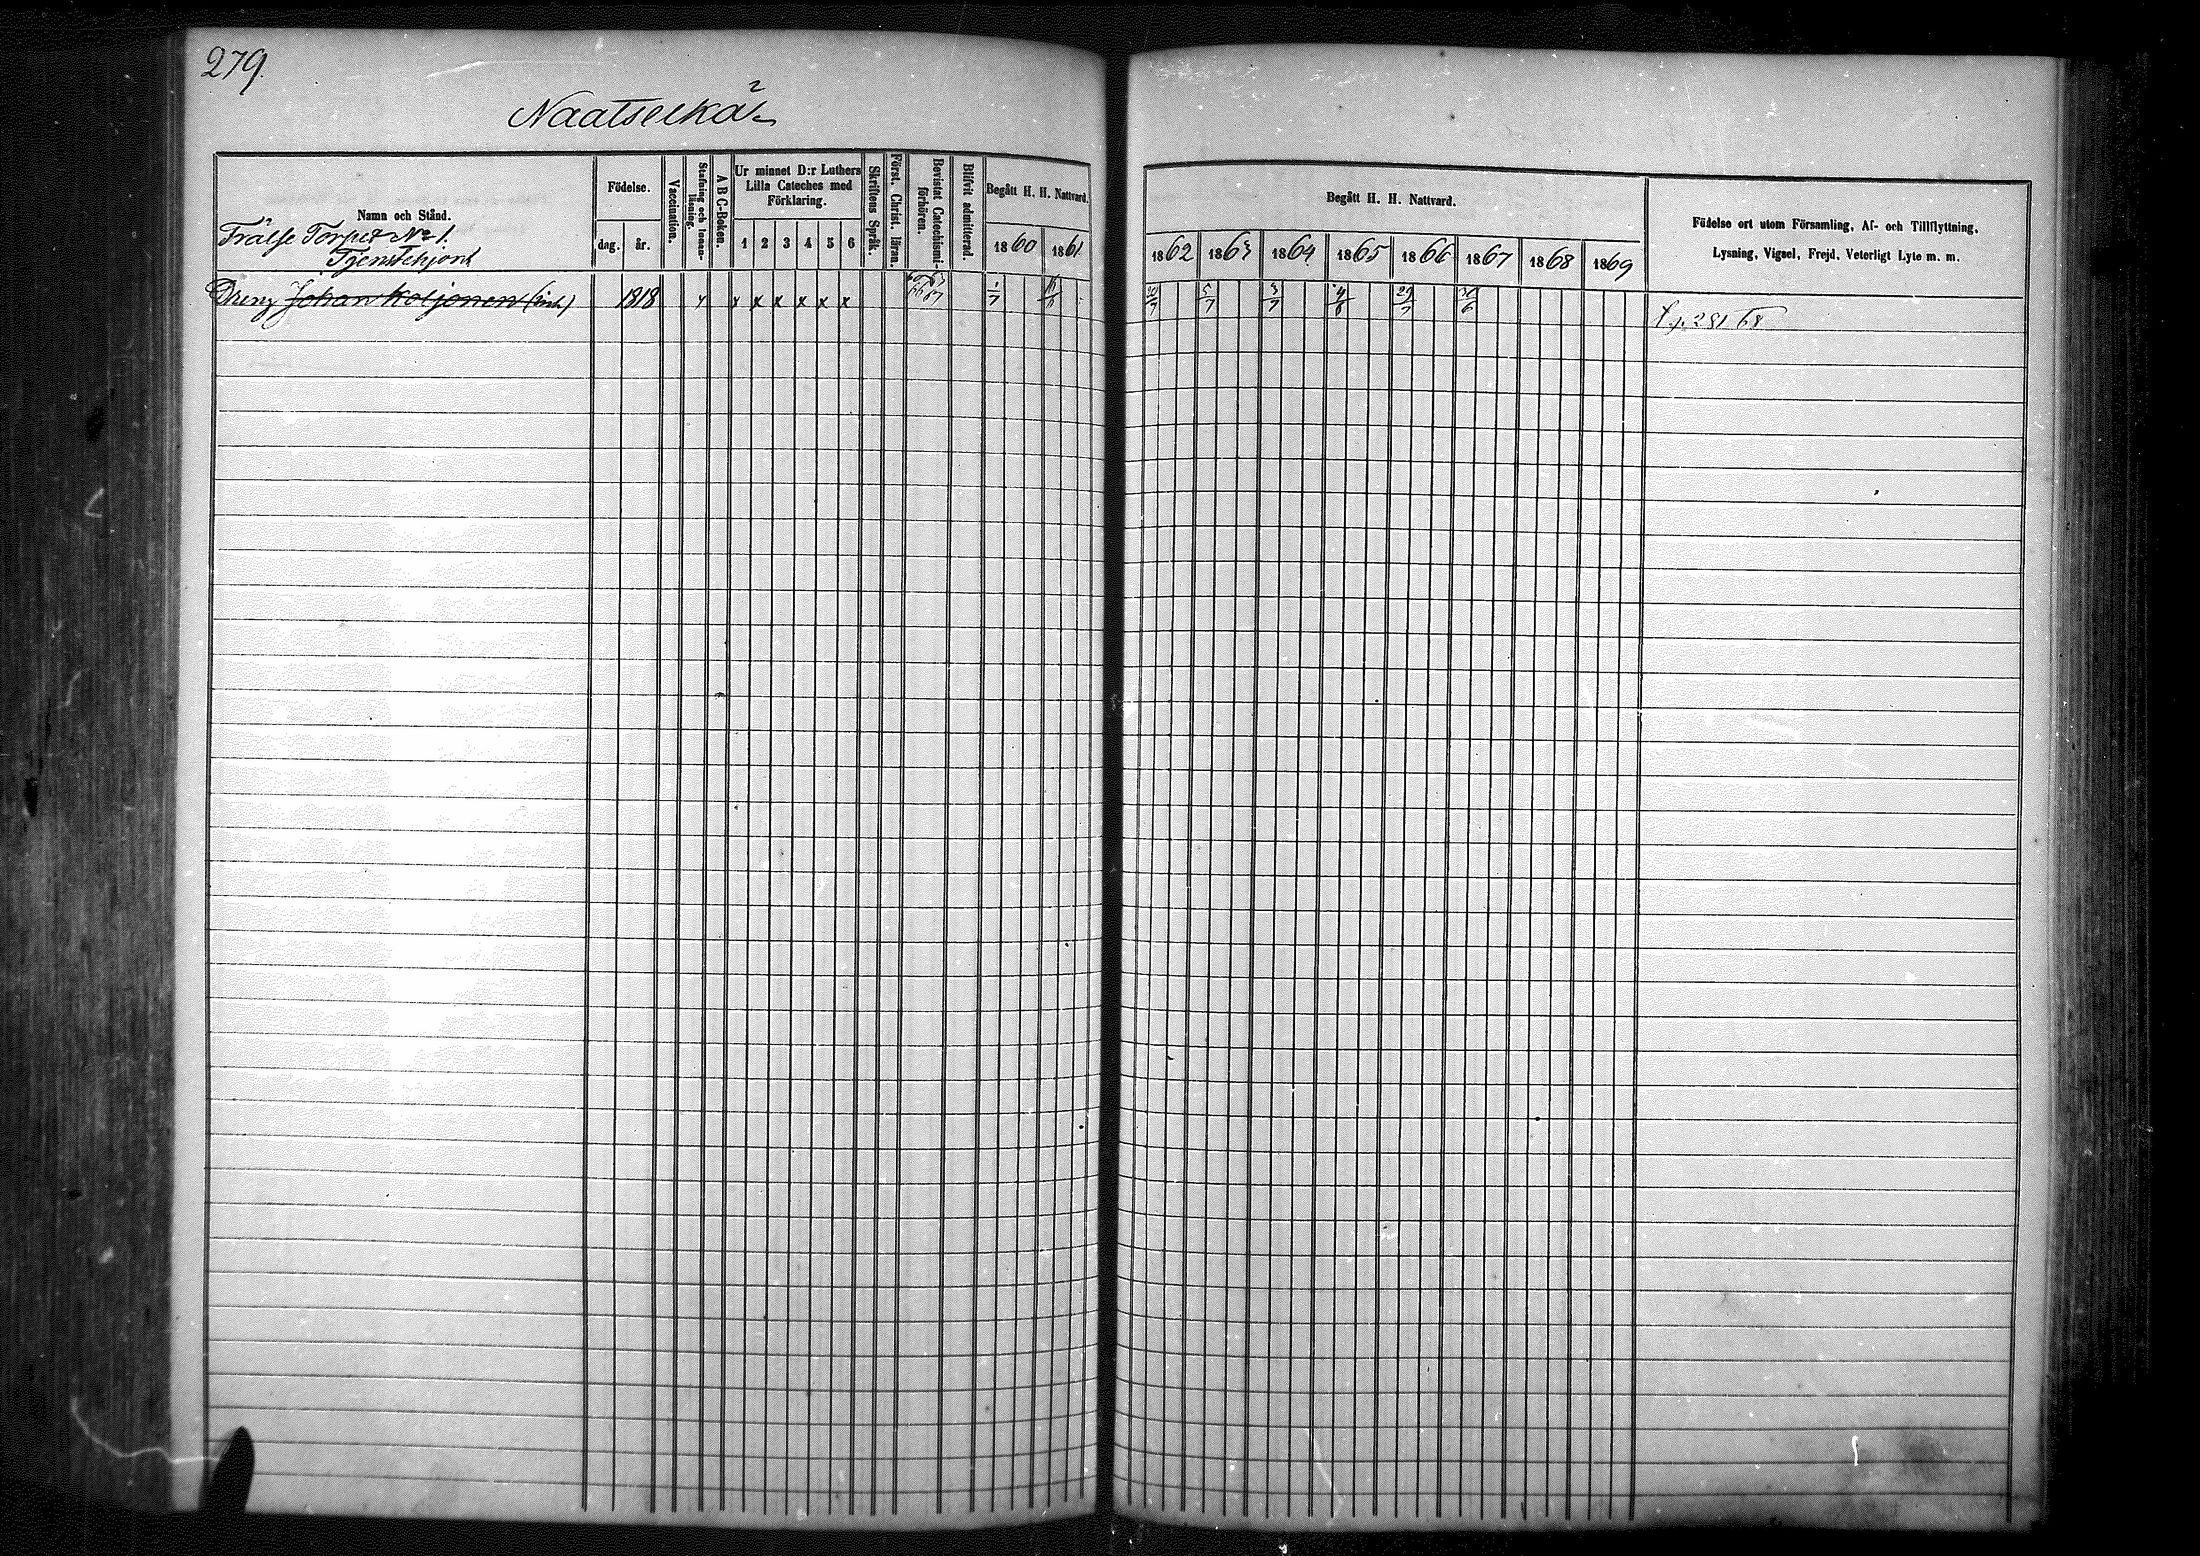 279.
Naatselkä
Namn och Stånd.
Frälse Torpet No 1.
Tjenstehjon
Födelse.
dag. år.
Vaccination.
Stafning och Innanläsning.
A B C-Boken.
Ur minnet D:r Luthers
Lilla Cateches med
Förklaring.
1 2 3 4 5 6
Skriftens Språk.
Först. Christ. läran.
Bevistat Catechismi-
förhören.
Blifvit admitterad.
Begått H. H. Nattvard.
1860 1861
Begått H. H. Nattvard.
1862 1863 1864 1865 1866 1867 1868 1869
Födelse ort utom Församling, Af- och Tillflyttning,
Lysning, Vigsel, Frejd, Veterligt Lyte m. m.
Dreng Johan Koljonen 1818 x x x x x x x 1/7 5/7 3/7 4/6 29/7 30/6
p. 281 68